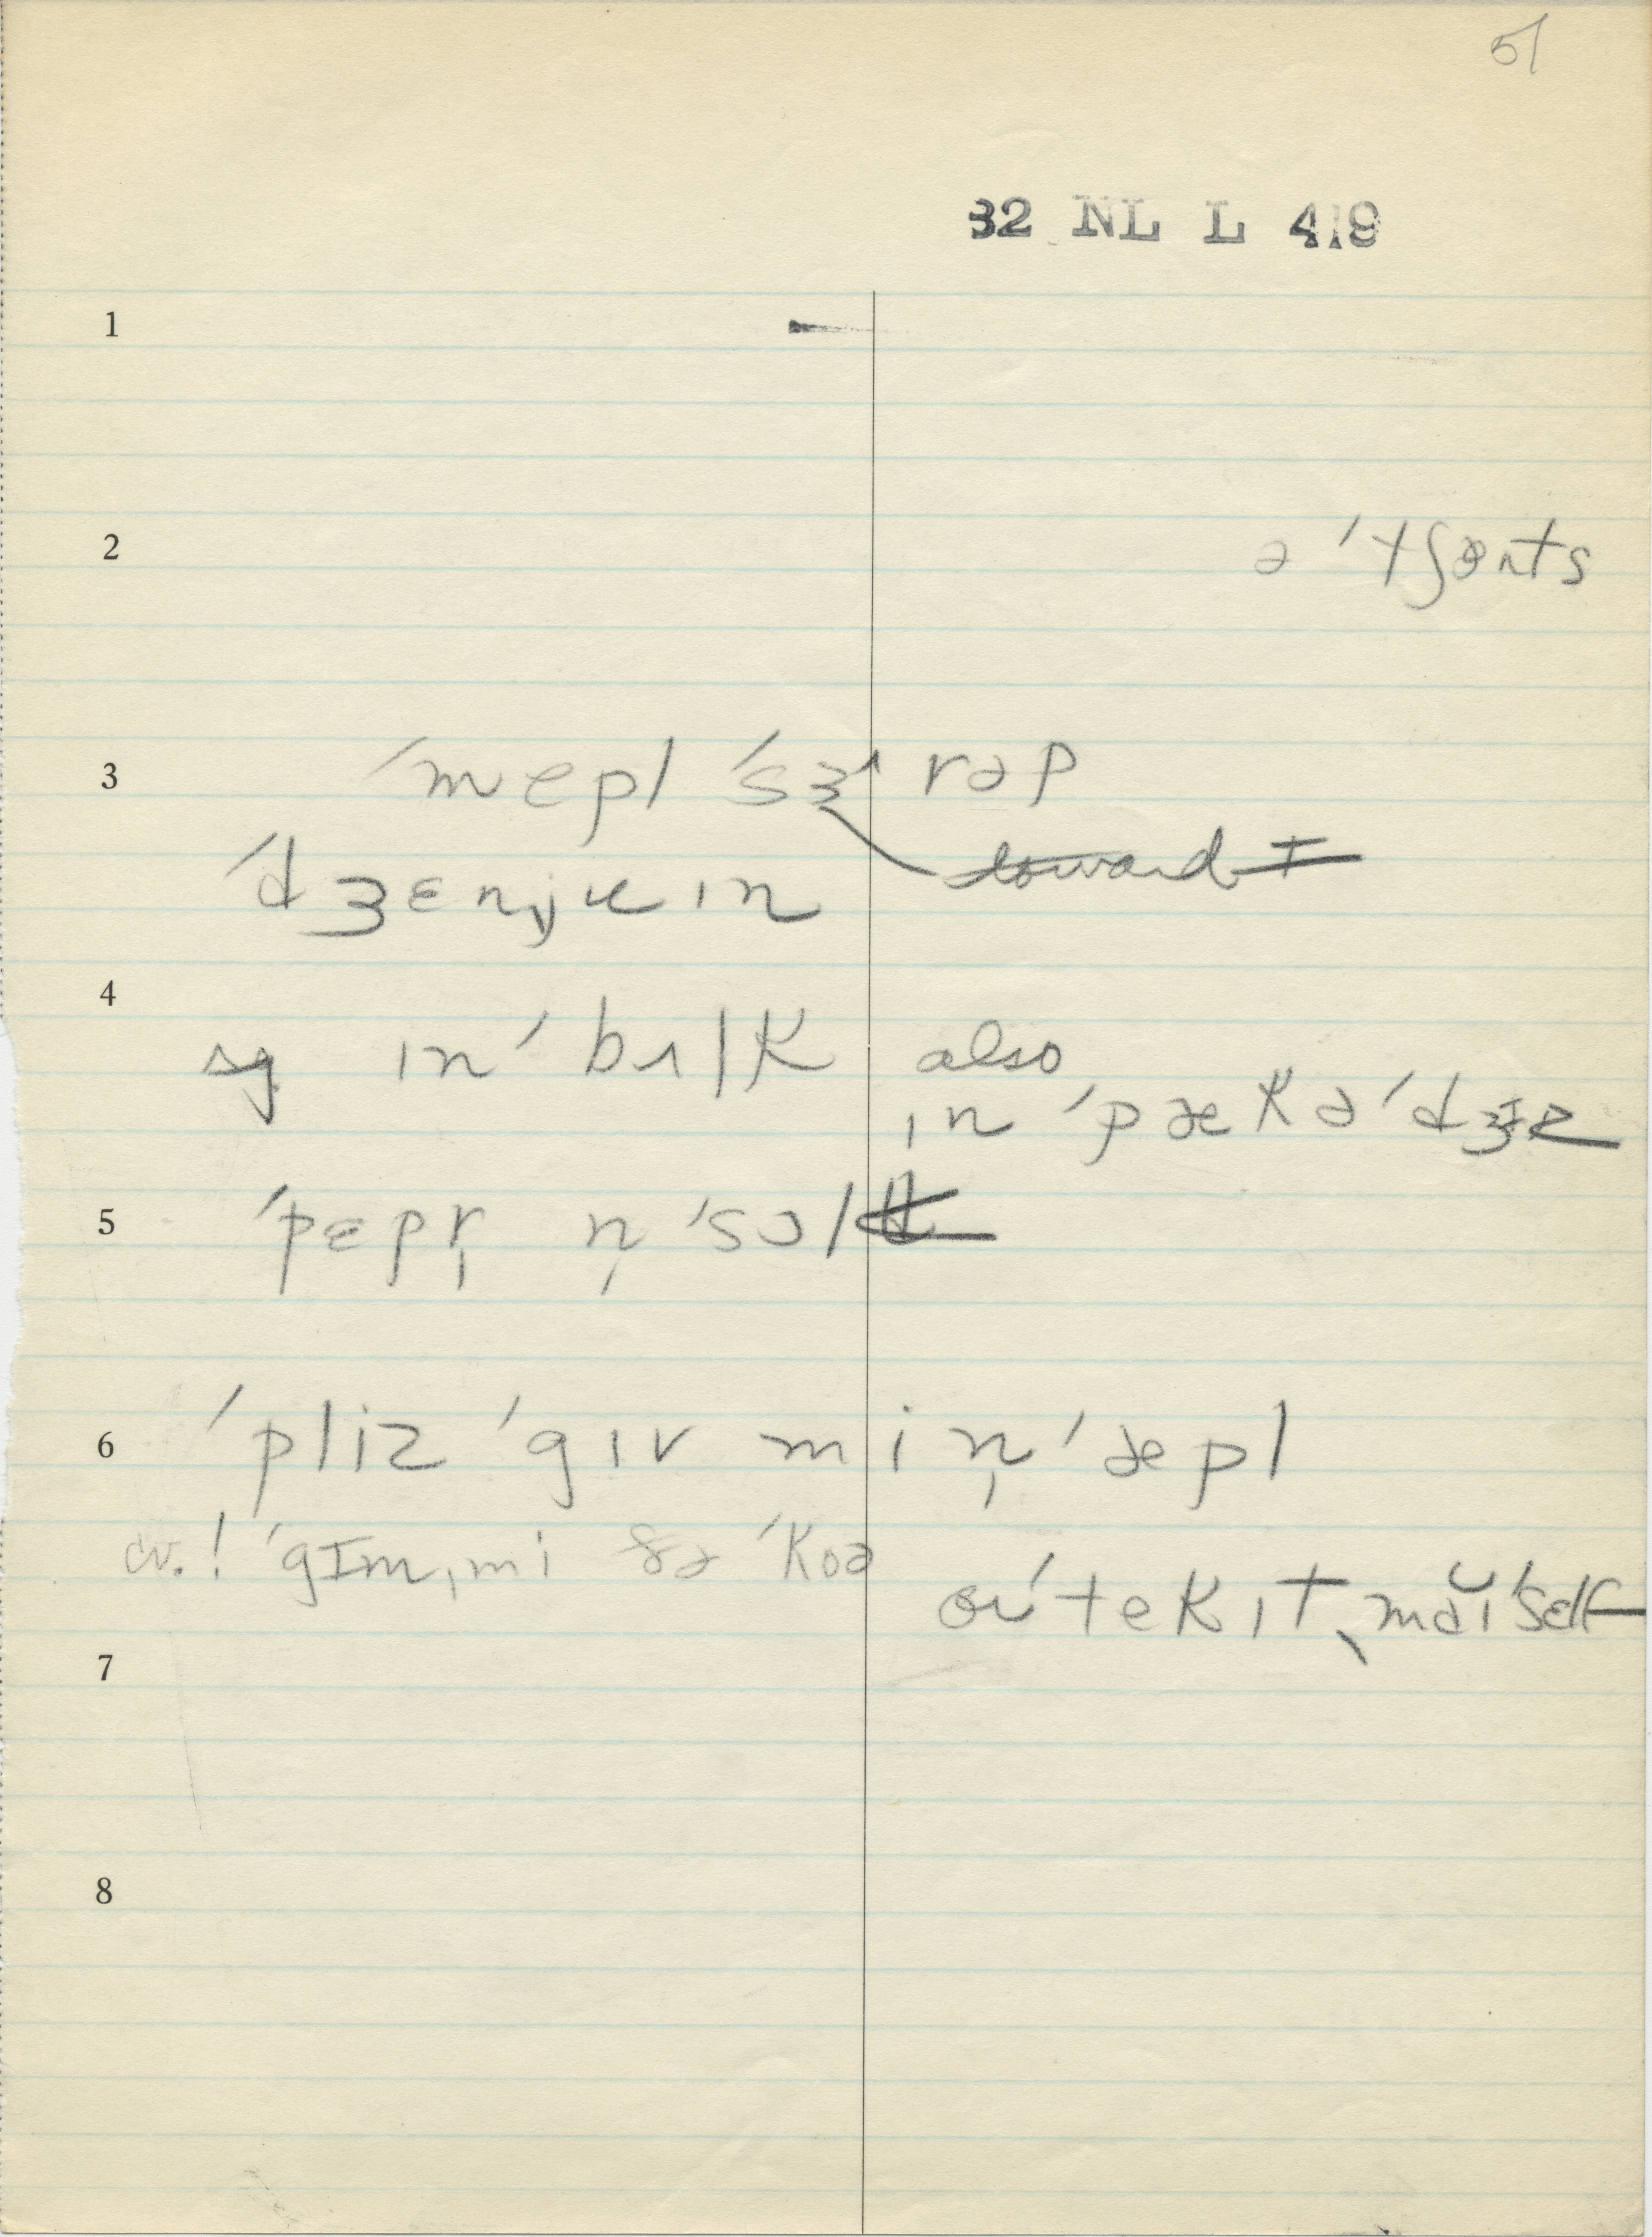 51
32 NL L 419
1
2 ə ˈtʃənts
3 ˈmepl ˈsɜ^rəp
ˈdʒɛnjuɪn toward I
4 sg ɪnˈbʌlk also
ɪn ˈpækəˈdʒɪz
5 ˈpepr̩ n̩ ˈsɔlt
6 ˈpliz ˈgɪv mi n̩ ˈæpl
cv.! ˈgɪmˌmi ðə ˈkoə
or ˈtek ɪt ˌmaĭˈself
7
8